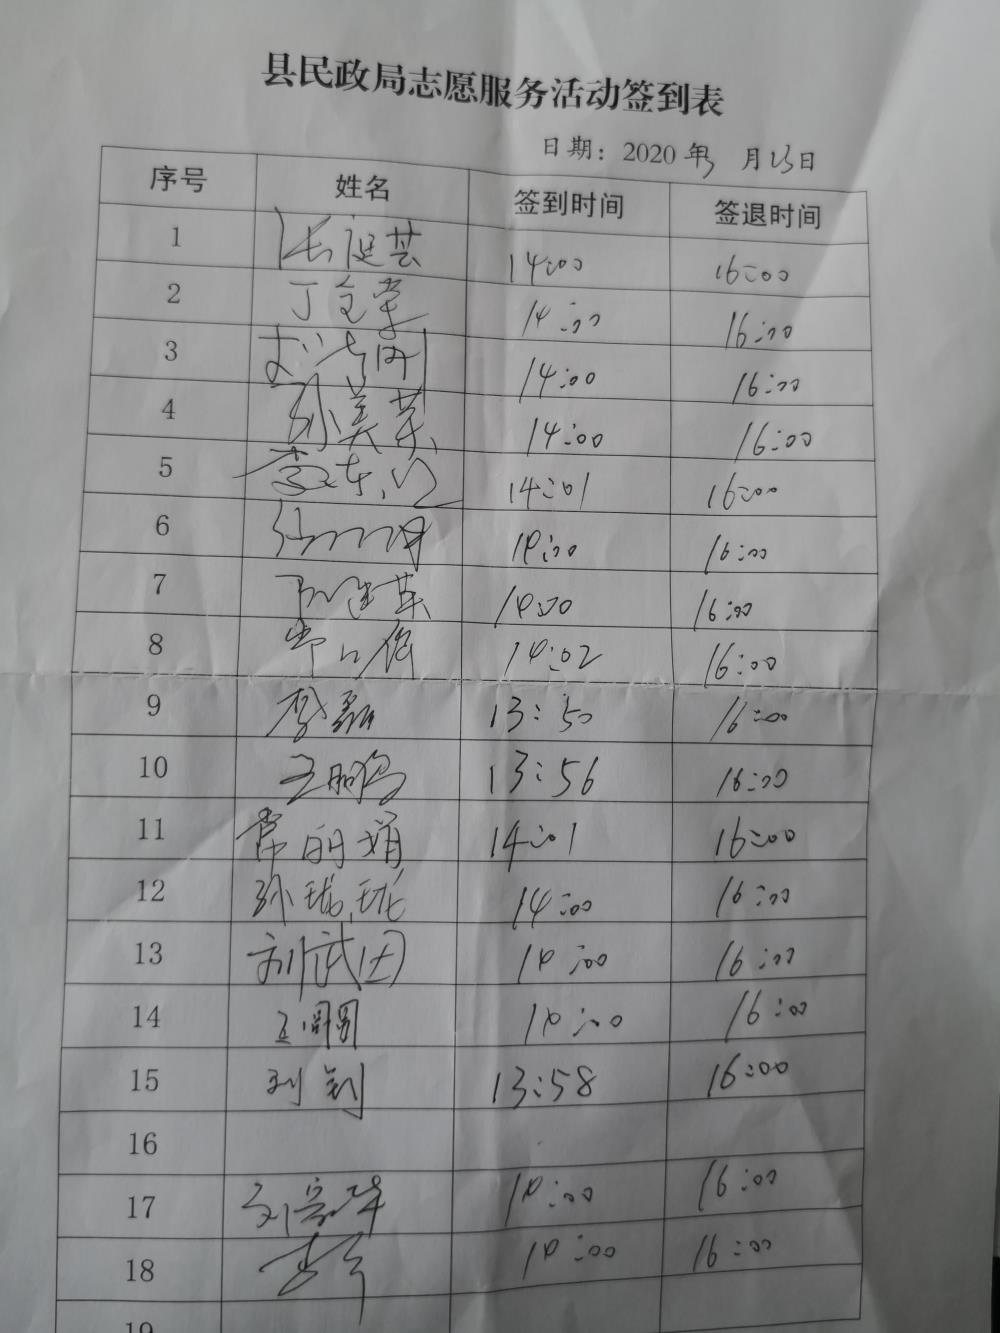 县民政局志愿服务活动签到表
日期：2020年 月 日
序号 姓名 签到时间 签退时间
1 张延芸 14:00 16:00
2 丁 14:00 16:00
3 14:00 16:00
4 孙美荣 14:00 16:00
5 14:01 16:00
6 14:00 16:00
7 14:00 16:00
8 14:02 16:00
9 李磊 13:50 16:00
10 王鹏 13:56 16:00
11 常丽娟 14:01 16:00
12 孙珑珑 14:00 16:00
13 刘 14:00 16:00
14 王 14:00 16:00
15 刘钊 13:58 16:00
16
17 刘 14:00 16:00
18 李 14:00 16:00
19